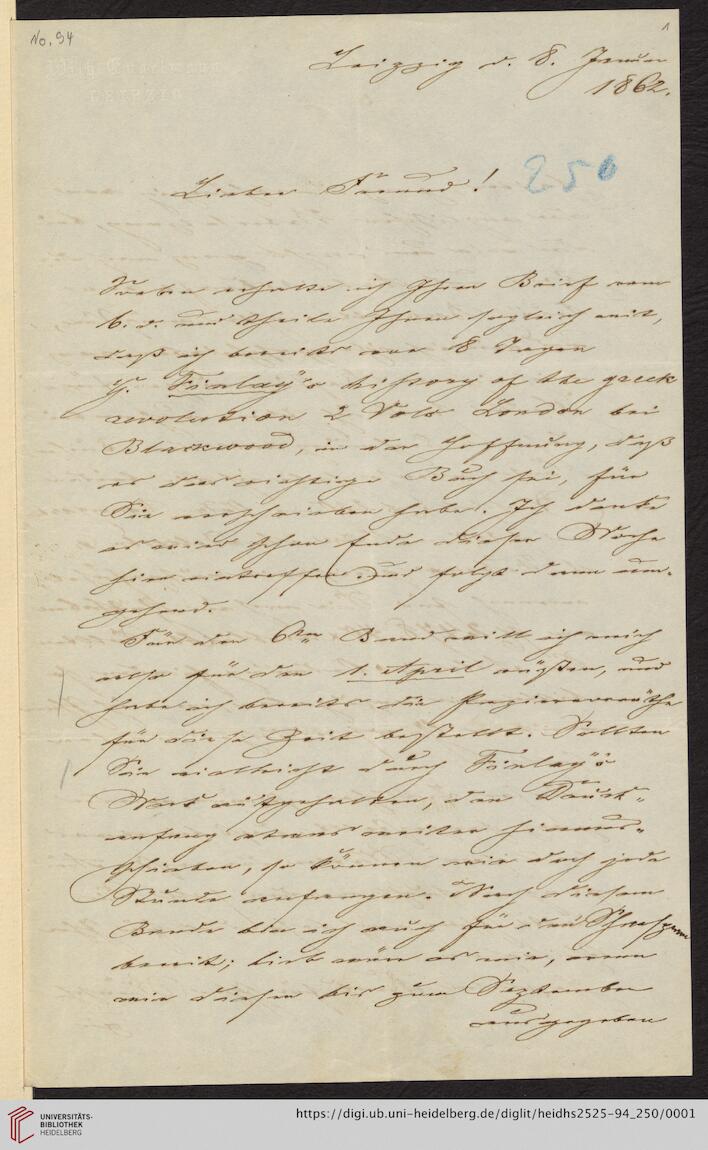 No. 94
1
Wilh. Engelmann
LEIPZIG
Leipzig d. 8. Januar
1862.
250
Lieber Freund!
Soeben erhalte ich Ihren Brief vom
6. d. und theile Ihnen sogleich mit,
daß ich bereits vor 8 Tagen
G. Finlay's history of the greek
revolution 2 Vols London bei
Blackwood, in der Hoffnung, daß
es das richtige Buch sei, für
Sie verschrieben habe. Ich denke
es wird schon Ende dieser Woche
hier eintreffen und folgt dann um-
gehend.
Für den 6ten Band will ich mich
also für den 1. April rüsten, und
habe ich bereits die Papiervorräthe
für diese Zeit bestellt. Sollten
Sie vielleicht durch Finlay's
Werk aufgehalten, den Druck-
anfang etwas weiter hinaus-
schieben, so können wir doch jede
Stunde anfangen. Nach diesem
Bande bin ich auch für den
bereit; lieb wäre es mir, wenn
wir diesen bis zum September
ausgegeben
UNIVERSITÄTS-
BIBLIOTHEK
HEIDELBERG
https://digi.ub.uni-heidelberg.de/diglit/heidhs2525-94_250/0001